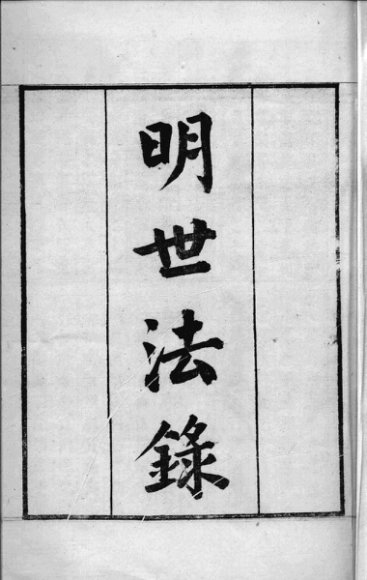 明世法錄